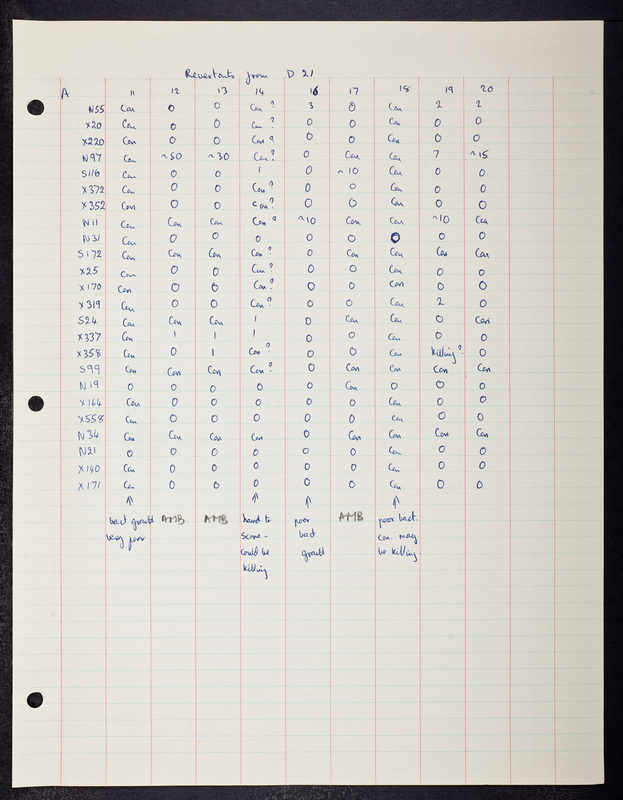 Revertants from D 21
A 11 12 13 14 16 17 18 19 20
N55 Con 0 0 Con ? 3 0 Con 2 2
X20 Con 0 0 Con ? 0 0 Con 0 0
X220 Con 0 0 Con ? 0 0 Con 0 0
N97 Con ~50 ~30 Con ? 0 Con Con 7 ~15
S116 Con 0 0 1 0 ~10 Con 0 0
X372 Con 0 0 Con ? 0 0 Con 0 0
X352 Con 0 0 Con ? 0 0 Con 0 0
N11 Con Con Con Con ? ~10 Con Con ~10 Con
N31 Con 0 0 0 0 0 0 0 0
S172 Con Con Con Con ? 0 Con Con Con Con
X25 Con 0 0 Con ? 0 0 Con 0 0
X170 Con 0 0 Con ? 0 0 Con 0 0
X319 Con 0 0 Con ? 0 0 Con 2 0
S24 Con Con Con 1 0 Con Con 0 Con
X337 Con 1 1 1 0 0 Con 0 0
X358 Con 0 1 Con ? 0 0 Con killing ? 0
S99 Con Con Con Con ? 0 Con Con Con Con
N19 0 0 0 0 0 Con 0 0 0
X164 Con 0 0 0 0 0 Con 0 0
X558 Con 0 0 0 0 0 Con 0 0
N34 Con Con Con Con 0 Con Con Con Con
N21 0 0 0 0 0 0 Con 0 0
X140 Con 0 0 0 0 0 Con 0 0
X171 Con 0 0 0 0 0 Con 0 0
↑ ↑ ↑ ↑
bact growth AMB AMB hard to poor AMB poor bact.
very poor score - bact. con. may
could be growth be killing.
killing